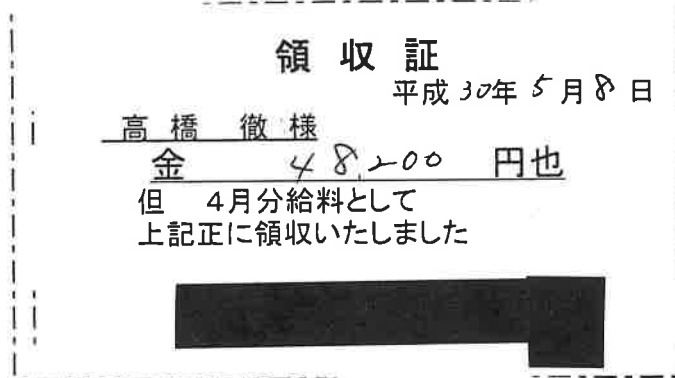 領収証
平成30年5月8日
高橋 徹様
金 48,200 円也
但 4月分給料として
上記正に領収いたしました